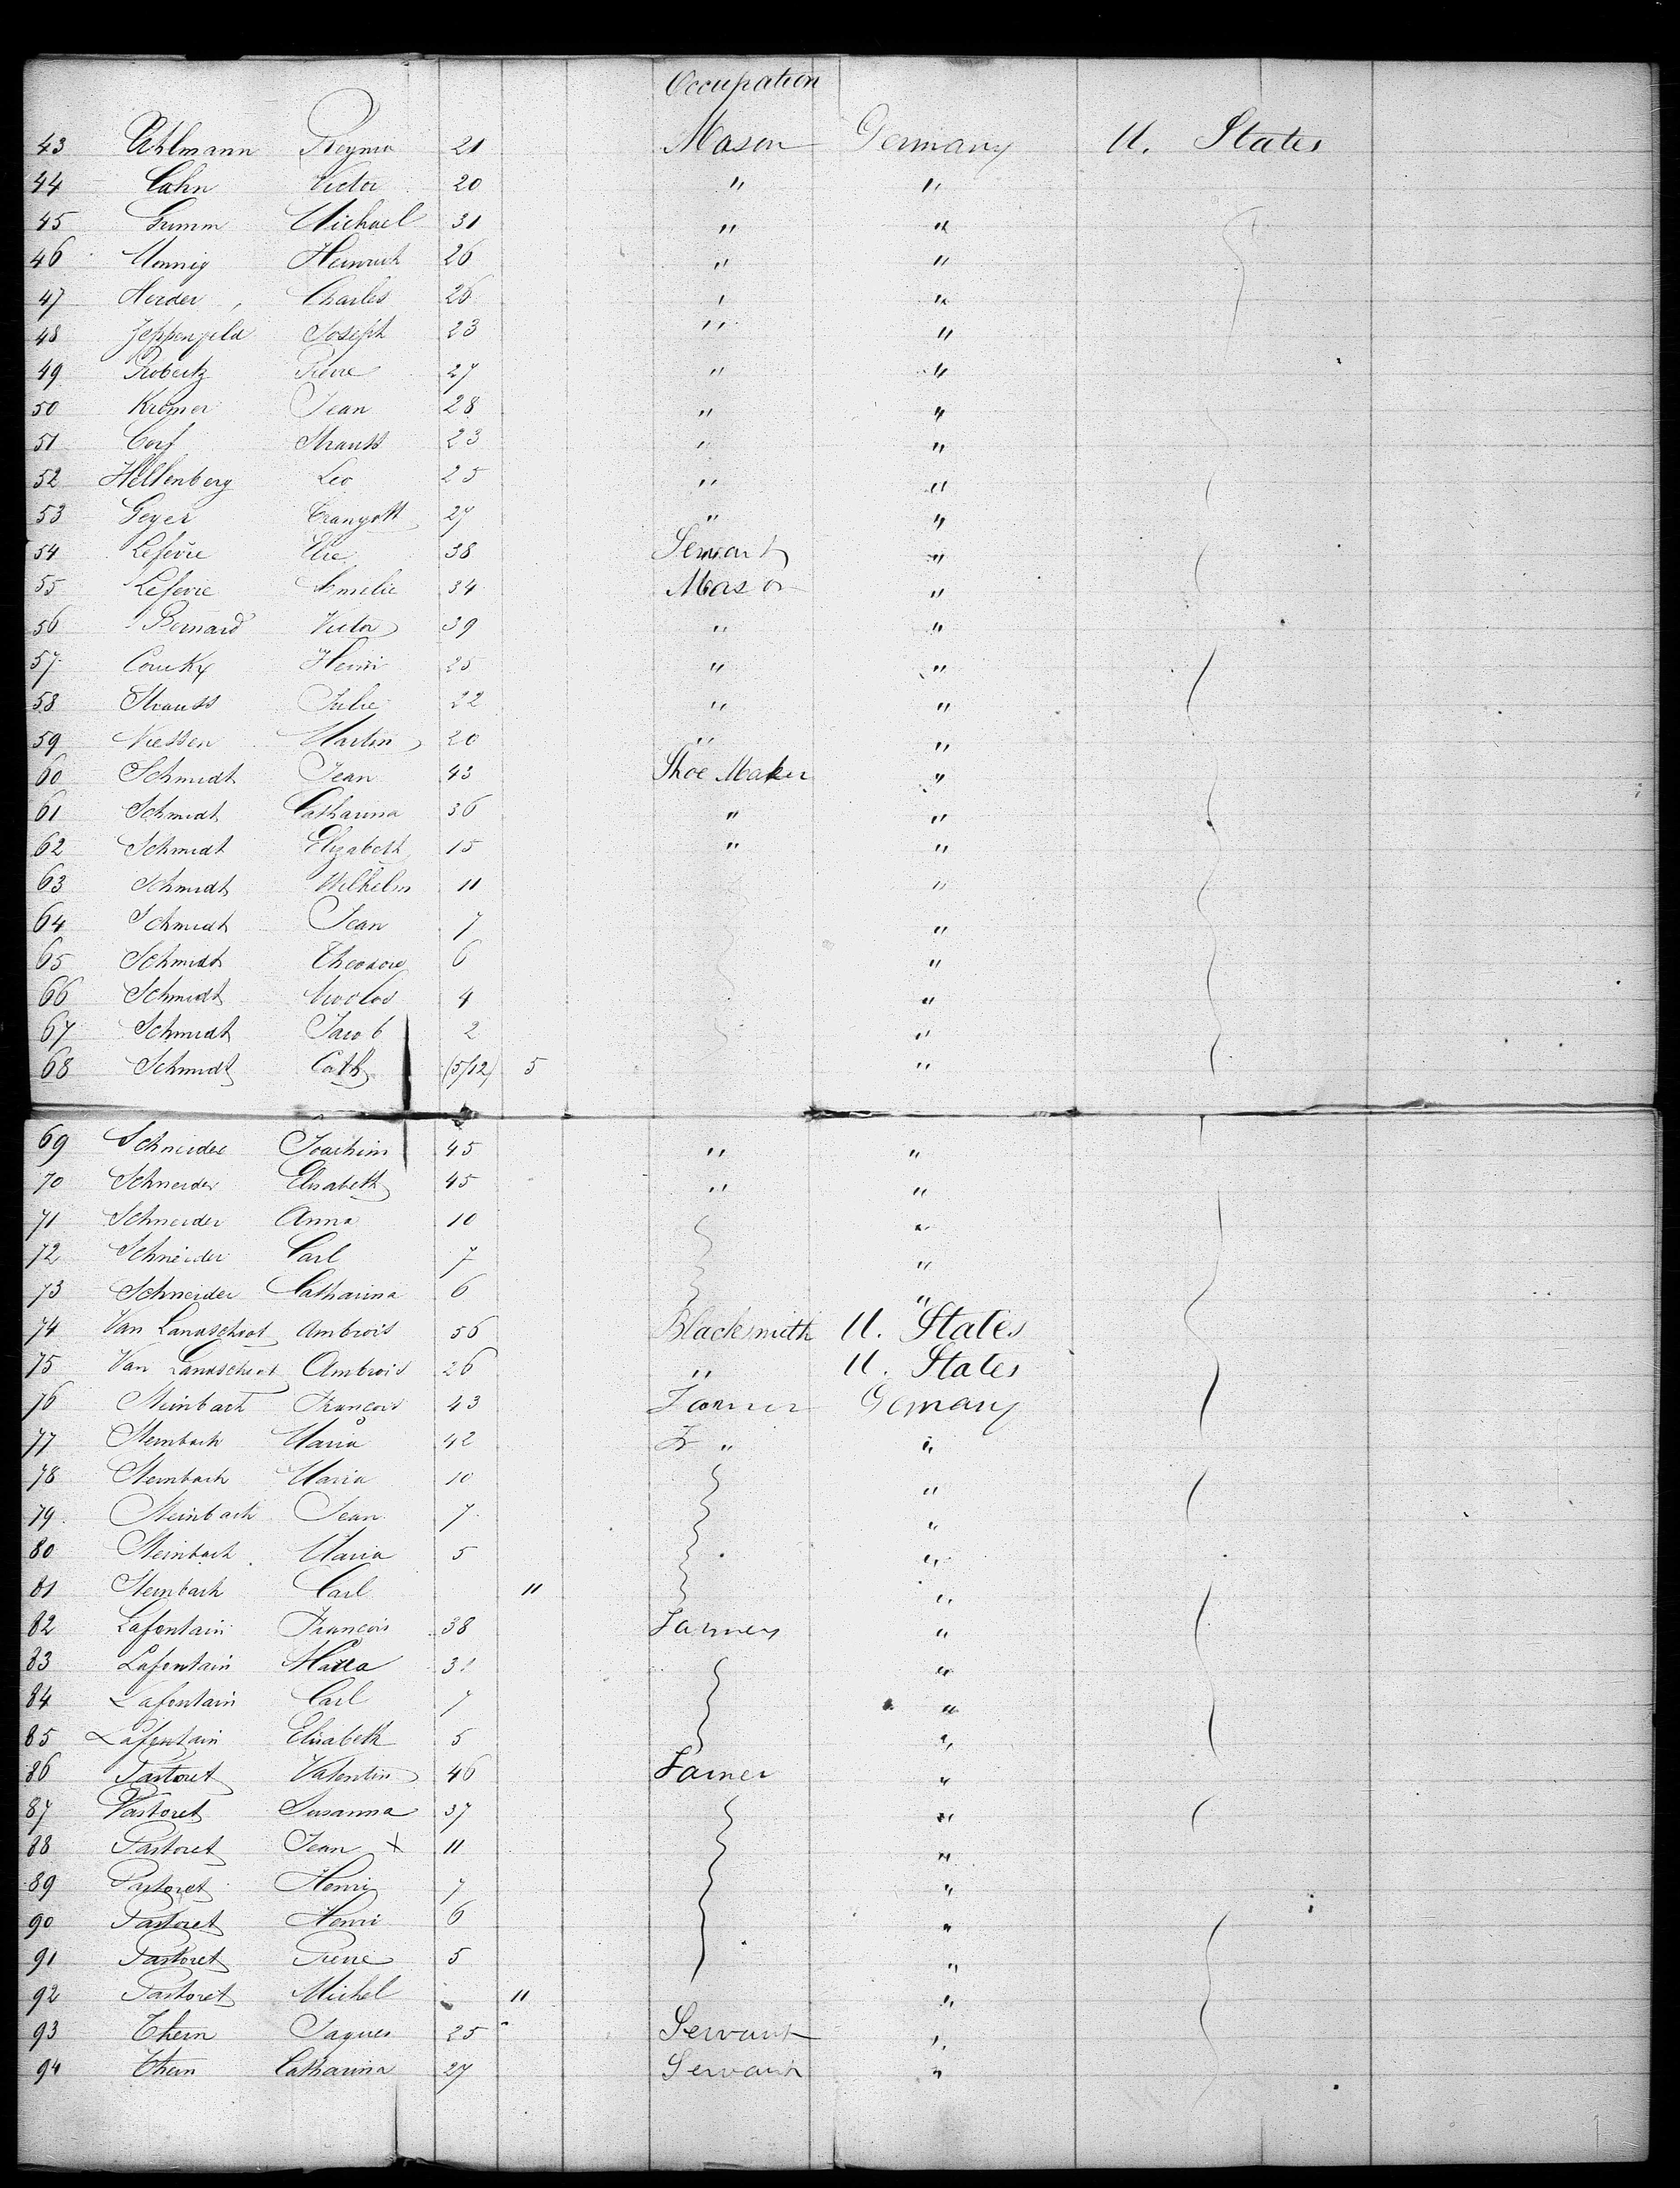 Occupation
43 Uhlmann 21 Mason Germany U. States
44 Cahn Victor 20 " "
45 Grumm Michael 31 " "
46 Monnig Heinrich 26 " "
47 Herder Charles 26 " "
48 Joseph 23 " "
49 Robertz Pierre 27 " "
50 Kremer Jean 28 " "
51 Corf Strauss 23 " "
52 Hellenberg Leo 25 " "
53 Geyer 27 " "
54 Lefevre Elie 38 Servant "
55 Lefevre Amelie 34 Mason "
56 Bernard Victor 39 " "
57 Henri 25 " "
58 Strauss Julie 22 " "
59 Niessen Martin 20 " "
60 Schmidt Jean 43 Shoe Maker "
61 Schmidt Catharina 36 " "
62 Schmidt Elizabeth 15 " "
63 Schmidt Wilhelm 11 "
64 Schmidt Jean 7 "
65 Schmidt Theodore 6 "
66 Schmidt 4 "
67 Schmidt Jacob 2 "
68 Schmidt Cath (5/12) 5 "
69 Schneider Joachim 45 " "
70 Schneider Elisabeth 45 " "
71 Schneider Anna 10 "
72 Schneider Carl 7 "
73 Schneider Catharina 6 "
74 Van Landschoot Ambrois 56 Blacksmith U. States
75 Van Landschoot Ambrois 26 " U. States
76 Steinbach Francois 43 Farmer Germany
77 Steinbach Maria 42 Fr " "
78 Steinbach Maria 10 "
79 Steinbach Jean 7 "
80 Steinbach Maria 5 "
81 Steinbach Carl 11 "
82 Lafontain Francois 38 Farmer "
83 Lafontain Maria "
84 Lafontain Carl 7 "
85 Lafontain Elisabeth 5 "
86 Pastoret Valentin 46 Farmer "
87 Pastoret Susanna 37 "
88 Pastoret Jean X 11 "
89 Pastoret Henri 7 "
90 Pastoret Henri 6 "
91 Pastoret Pierre 5 "
92 Pastoret Michel 11 "
93 Thein Jaques 25 Servant "
94 Thein Catharina 27 Servant "